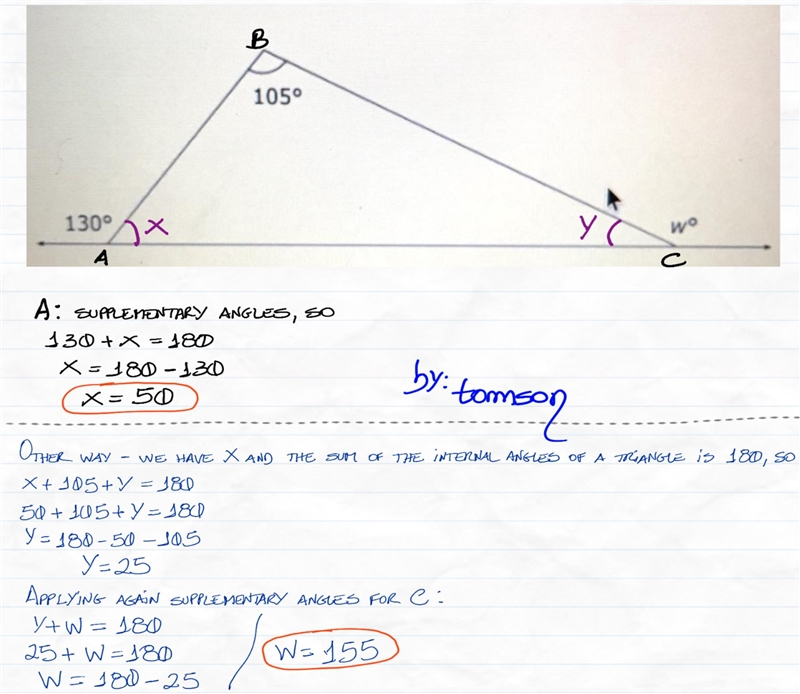 B
105°
130° X Y w°
A C
A: SUPPLEMENTARY ANGLES, SO
130 + X = 180
X = 180 - 130
X = 50
by: tomson
OTHER WAY - WE HAVE X AND THE SUM OF THE INTERNAL ANGLES OF A TRIANGLE IS 180, SO
X + 105 + Y = 180
50 + 105 + Y = 180
Y = 180 - 50 - 105
Y = 25
APPLYING AGAIN SUPPLEMENTARY ANGLES FOR C:
Y + W = 180
25 + W = 180
W = 180 - 25
W = 155